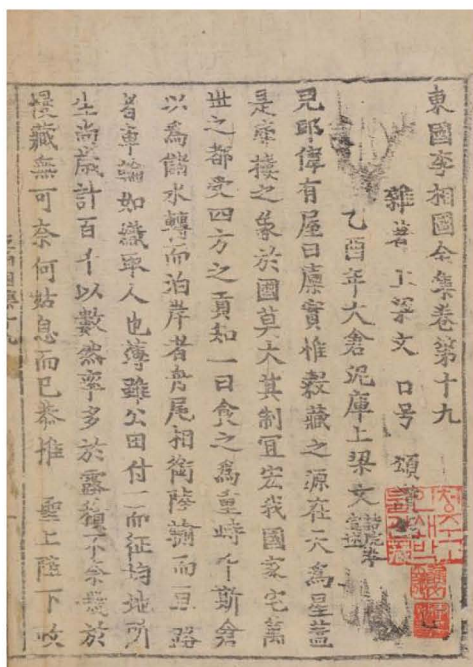 東國李相國全集卷第十九
雜著 上梁文 口号 頌
乙酉年大倉泥庫上梁文
兒郎偉有屋曰廩實惟穀藏之源在天為星蓋
是庫樓之象於國莫大其制宜宏我國家宅萬
世之都受四方之貢知一日食之為重峙千斯倉
以為儲水轉而泊岸者舟尾相銜陸輸而旦路
者車輪如織取人也薄雖公田什一而征均地所
生尚歲計百千以數然率多於露積不奈𢙢於
慢藏無可奈何姑息而已恭惟 聖上陛下